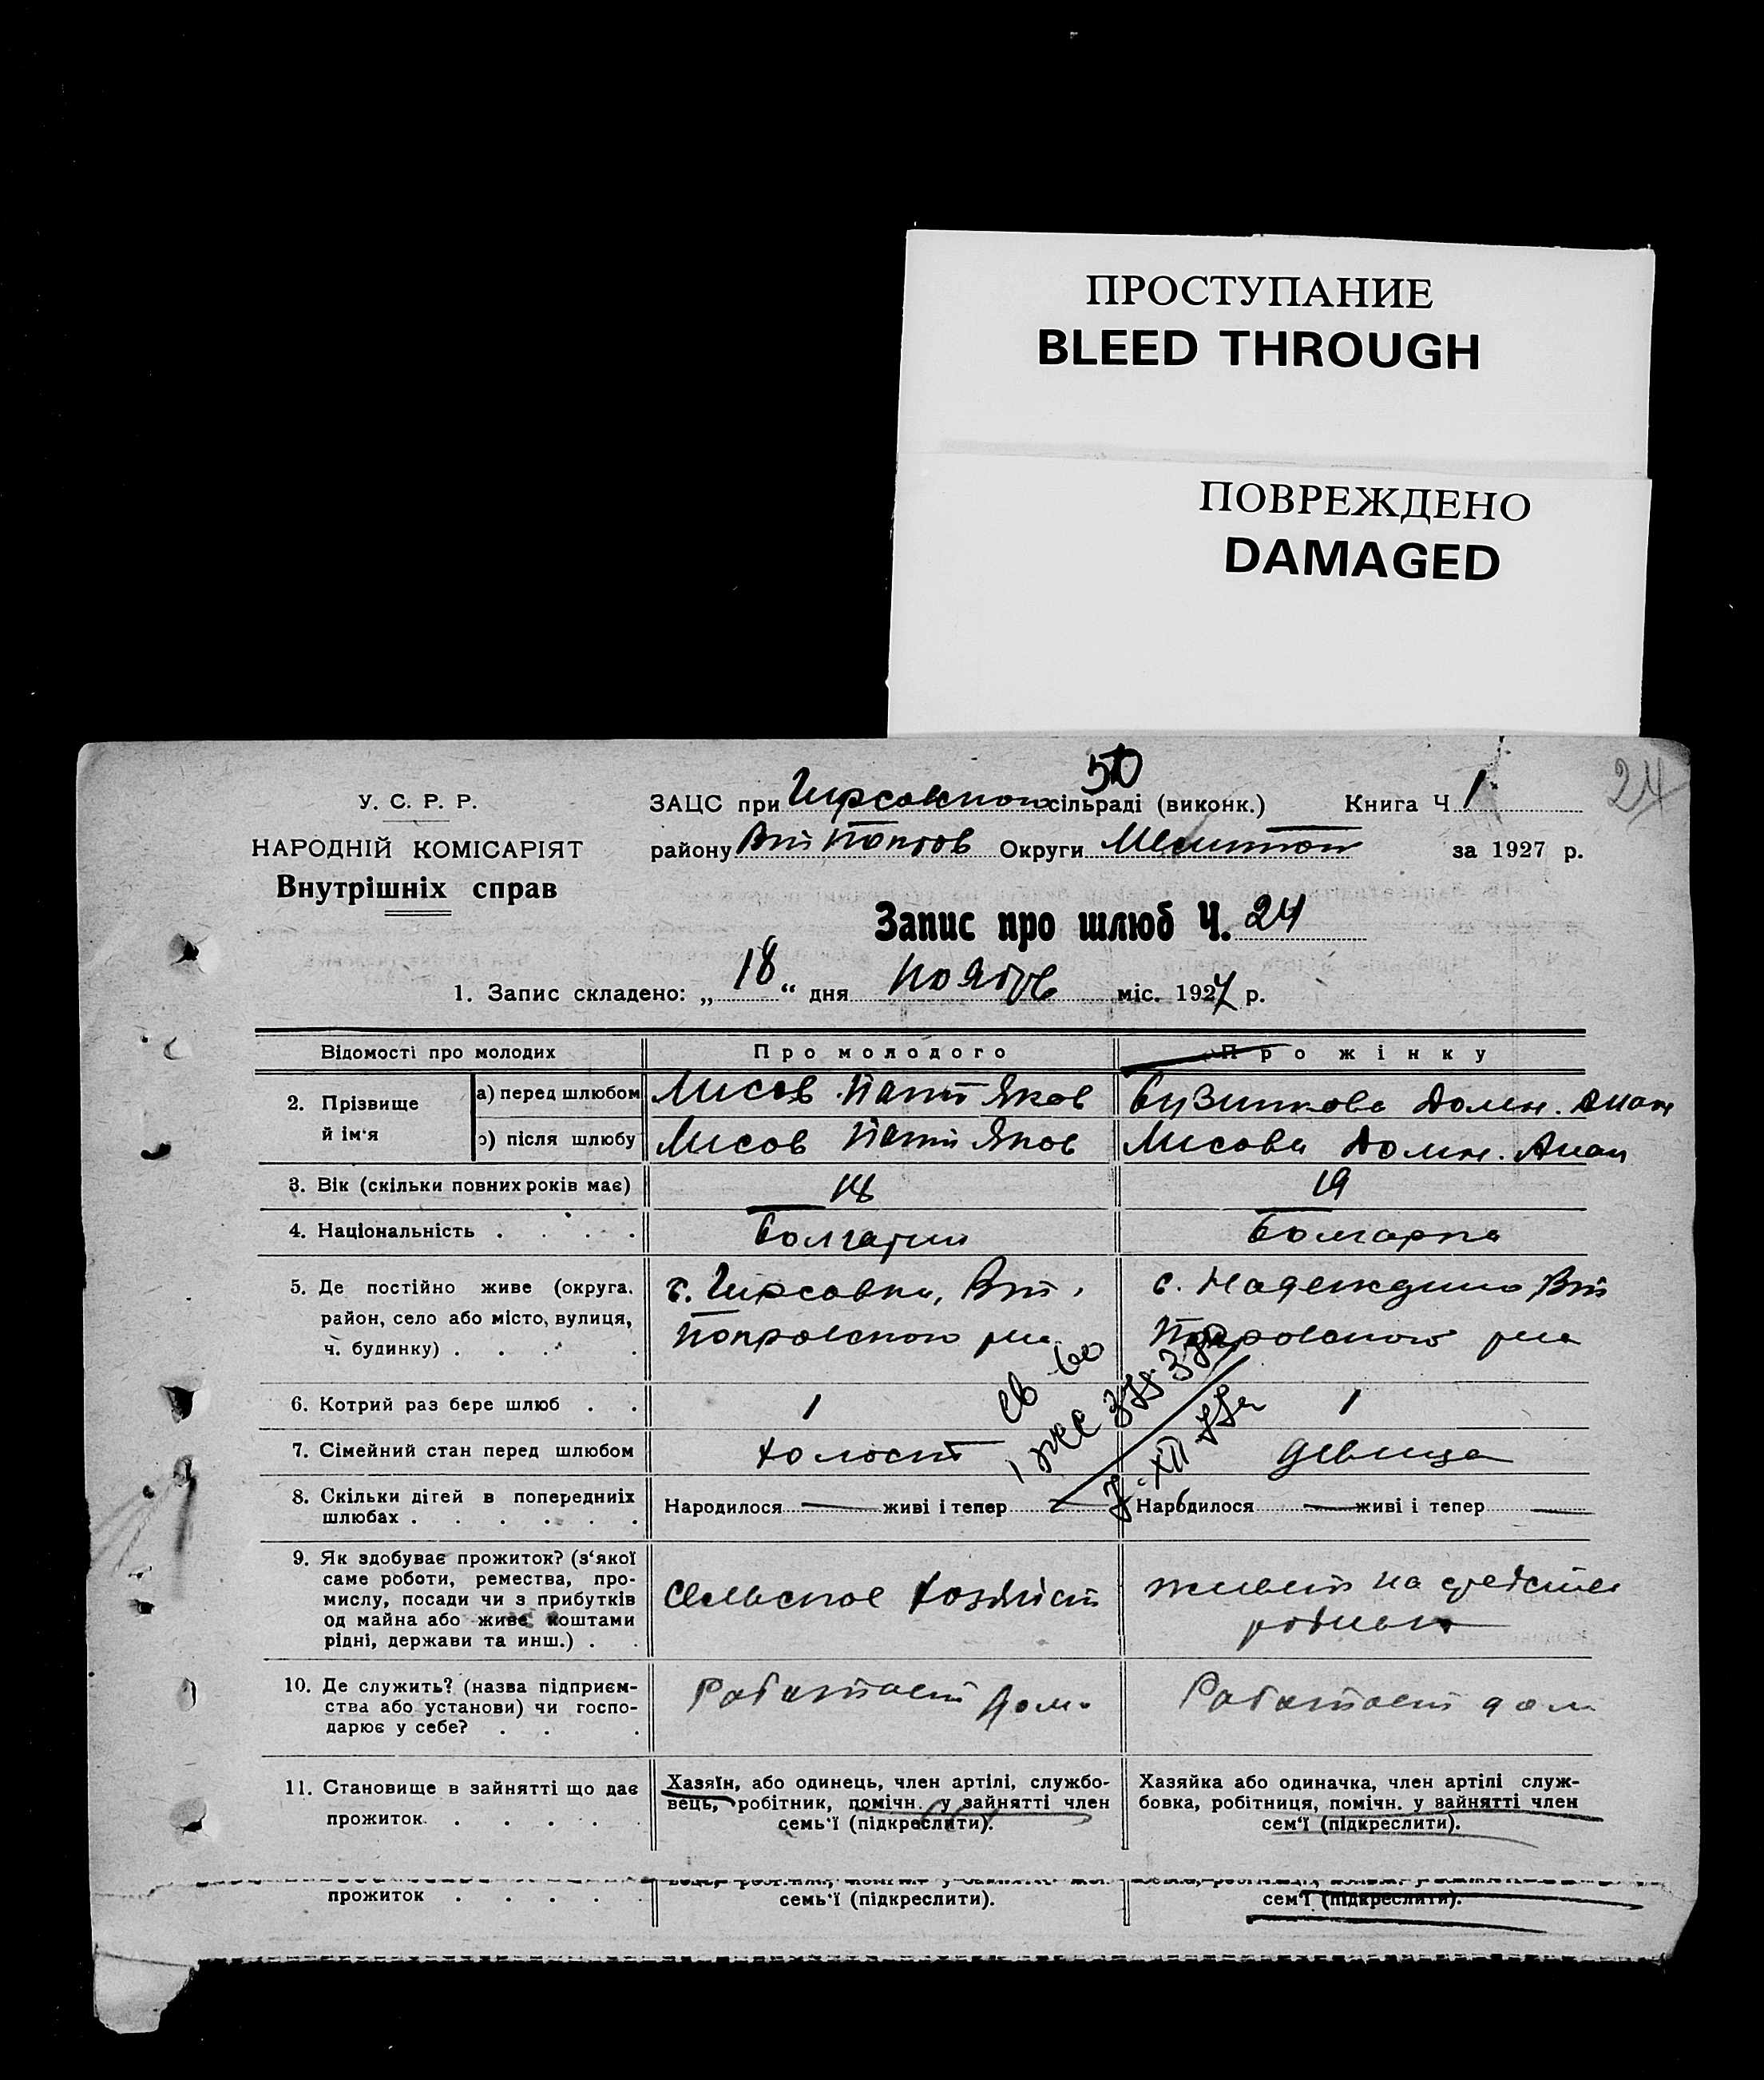 ПРОСТУПАНИЕ
BLEED THROUGH
ПОВРЕЖДЕНО
DAMAGED
24
50
У. С. Р. Р.
НАРОДНІЙ КОМІСАРІЯТ
Внутрішніх справ
ЗАЦС при Гирсовском сільраді (виконк.) Книга Ч. 1
району Округи за 1927 р.
Запис про шлюб Ч. 24
1. Запис складено: „ 18 “ дня Ноября міс. 1927 р.
Відомості про молодих Про молодого Про жінку
2. Прізвище й ім'я
а) перед шлюбом Лисов Яков Бузинкова Домн.
э) після шлюбу Лисов Яков Лисова Домн.
3. Вік (скільки повних років має) 18 19
4. Національність . . . . Болгарин Болгарка
5. Де постійно живе (округа, с. Гирсовка, Вт. с. Надеждино Вт
район, село або місто, вулиця, Покровского р-на Покровского р-на
ч. будинку) . . . .
6. Котрий раз бере шлюб . . 1 1
7. Сімейний стан перед шлюбом холост девица
8. Скільки дітей в попередниіх Народилося — живі і тепер — Народилося — живі і тепер —
шлюбах . . . . . .
9. Як здобуває прожиток? (з'якої
саме роботи, ремества, про- Сельское хозяйст живет на средства
мислу, посади чи з прибутків
од майна або живе коштами
рідні, держави та инш.) . .
10. Де служить? (назва підприєм- Работает дома Работает дом
ства або установи) чи госпо-
дарює у себе? . . .
11. Становище в зайнятті що дає Хазяїн, або одинець, член артілі, службо- Хазяйка або одиначка, член артілі служ-
прожиток. . . . . . вець, робітник, помічн. у зайнятті член бовка, робітниця, помічн. у зайнятті член
семь'ї (підкреслити). сем'ї (підкреслити).
прожиток . . . . . семь'ї (підкреслити). сем'ї (підкреслити).